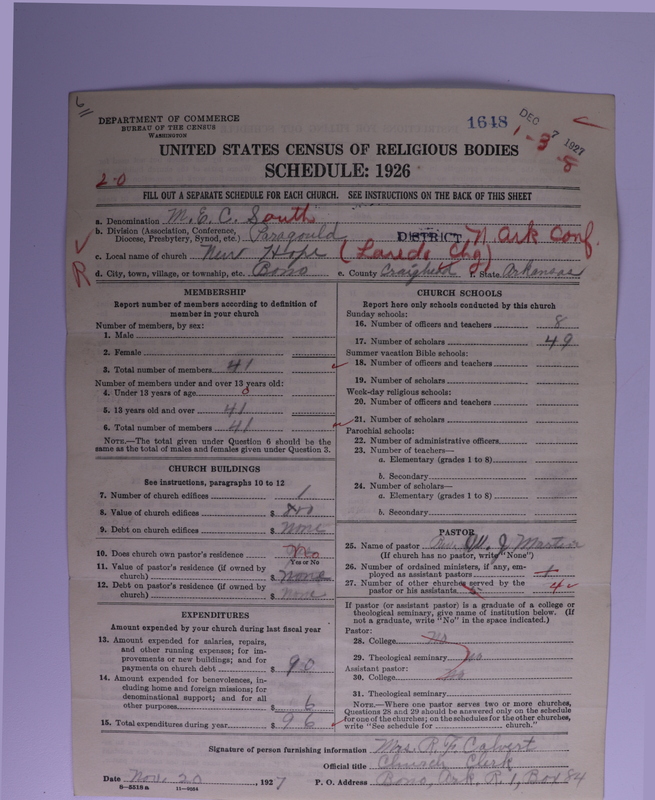 6
DEPARTMENT OF COMMERCE
BUREAU OF THE CENSUS
WASHINGTON
1648
DEC 7 1927
1-3-8
UNITED STATES CENSUS OF RELIGIOUS BODIES
SCHEDULE: 1926
2-0
FILL OUT A SEPARATE SCHEDULE FOR EACH CHURCH. SEE INSTRUCTIONS ON THE BACK OF THIS SHEET
a. Denomination M. E. C. South
b. Division (Association, Conference, Diocese, Presbytery, Synod, etc.) Paragould DISTRICT N. Ark Conf.
c. Local name of church New Hope (Laredo Chg)
R
d. City, town, village, or township, etc. Bono e. County Craighead f. State Arkansas
MEMBERSHIP
Report number of members according to definition of
member in your church
Number of members, by sex:
1. Male
2. Female
3. Total number of members 41
Number of members under and over 13 years old:
4. Under 13 years of age 0
5. 13 years old and over 41
6. Total number of members 41
NOTE.—The total given under Question 6 should be the
same as the total of males and females given under Question 3.
CHURCH BUILDINGS
See instructions, paragraphs 10 to 12
7. Number of church edifices 1
8. Value of church edifices $
9. Debt on church edifices $ None
10. Does church own pastor's residence No
Yes or No
11. Value of pastor's residence (if owned by
church) $ None
12. Debt on pastor's residence (if owned by
church) $ None
EXPENDITURES
Amount expended by your church during last fiscal year
13. Amount expended for salaries, repairs,
and other running expenses; for im-
provements or new buildings; and for
payments on church debt $ 90
14. Amount expended for benevolences, in-
cluding home and foreign missions; for
denominational support; and for all
other purposes $ 6
15. Total expenditures during year $ 96
CHURCH SCHOOLS
Report here only schools conducted by this church
Sunday schools:
16. Number of officers and teachers 8
17. Number of scholars 49
Summer vacation Bible schools:
18. Number of officers and teachers
19. Number of scholars
Week-day religious schools:
20. Number of officers and teachers
21. Number of scholars
Parochial schools:
22. Number of administrative officers
23. Number of teachers—
a. Elementary (grades 1 to 8)
b. Secondary
24. Number of scholars—
a. Elementary (grades 1 to 8)
b. Secondary
PASTOR
25. Name of pastor Rev. W. J.
(If church has no pastor, write "None")
26. Number of ordained ministers, if any, em-
ployed as assistant pastors
27. Number of other churches served by the
pastor or his assistants 4
If pastor (or assistant pastor) is a graduate of a college or
theological seminary, give name of institution below. (If
not a graduate, write "No" in the space indicated.)
Pastor:
28. College no
29. Theological seminary no
Assistant pastor:
30. College no
31. Theological seminary
NOTE.—Where one pastor serves two or more churches,
Questions 28 and 29 should be answered only on the schedule
for one of the churches; on the schedules for the other churches,
write "See schedule for church."
Signature of person furnishing information Mrs. R. F. Calvert
Official title Church Clerk
Date Nov. 20, 1927 P. O. Address Bono, Ark. R. 1, Box 84
8-5518a 11-9054